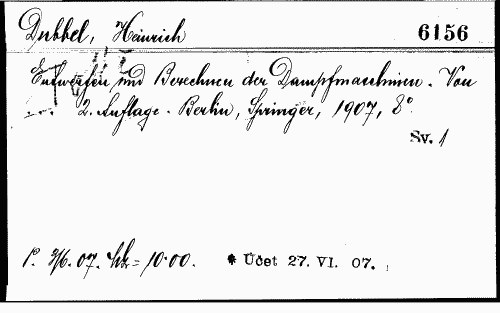 Dubbel, Heinrich 6156
Entwerfen und Berechnen der Dampfmaschinen. Von
2. Auflage. Berlin, Springer, 1907, 8°
Sv. 1
P. 3/6. 07. = 10.00. * Účet 27. VI. 07.